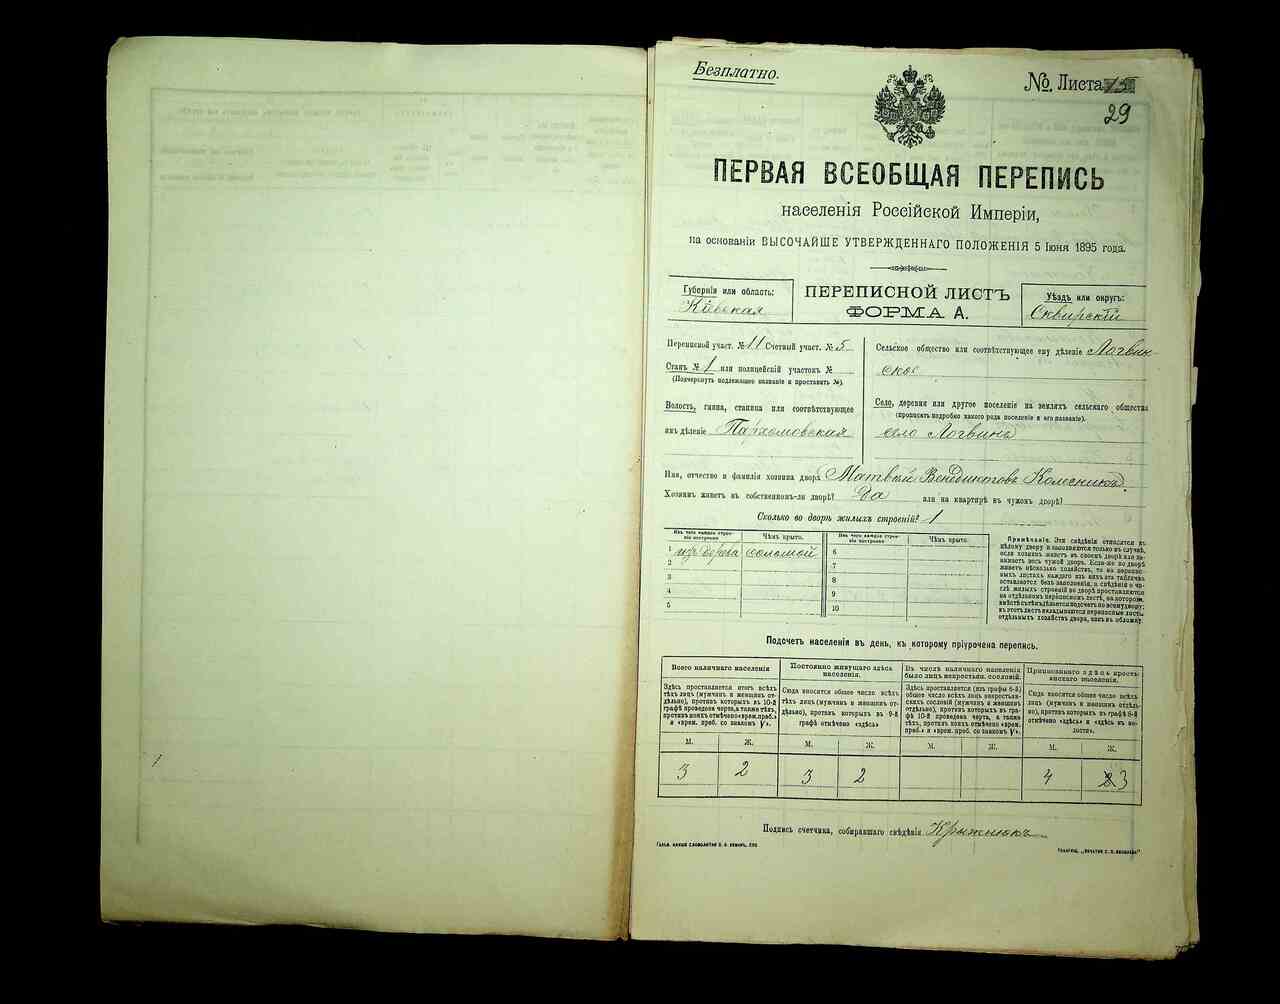 Безплатно.
№. Листа
29
ПЕРВАЯ ВСЕОБЩАЯ ПЕРЕПИСЬ
населенія Россійской Имперіи,
на основаніи ВЫСОЧАЙШЕ УТВЕРЖДЕННАГО ПОЛОЖЕНІЯ 5 Іюня 1895 года.
Губернія или область:
Кіевская
ПЕРЕПИСНОЙ ЛИСТЪ
ФОРМА А.
Уѣздъ или округъ:
Сквирскій
Переписной участ. № 11 Счетный участ. № 5
Станъ № 1 или полицейскій участокъ №
(Подчеркнуть подлежащее названіе и проставить №).
Волость, гмина, станица или соотвѣтствующее
имъ дѣленіе Пархомовская
Сельское общество или соотвѣтствующее ему дѣленіе Логвин-
ское
Село, деревня или другое поселеніе на земляхъ сельскаго общества
(прописать подробно какого рода поселеніе и его названіе).
село Логвинъ
Имя, отчество и фамилія хозяина двора Матвѣй Венедиктовъ Колесникъ.
Хозяинъ живетъ въ собственномъ-ли дворѣ? Да или на квартирѣ въ чужомъ дворѣ?
Сколько во дворѣ жилыхъ строеній? 1
Изъ чего каждое строеніе построено
Чѣмъ крыто.
Изъ чего каждое строеніе построено
Чѣмъ крыто.
1 изъ дерева соломой
2
3
4
5
6
7
8
9
10
Примѣчаніе. Эти свѣдѣнія относятся къ
цѣлому двору и заполняются только въ случаѣ,
если хозяинъ живетъ въ своемъ дворѣ или за-
нимаетъ весь чужой дворъ. Если-же во дворѣ
живетъ нѣсколько хозяйствъ, то на перепис-
ныхъ листахъ каждаго изъ нихъ эта табличка
оставляется безъ заполненія, а свѣдѣнія о чи-
слѣ жилыхъ строеній во дворѣ проставляются
на отдѣльномъ переписномъ листѣ, на которомъ
вмѣстѣ съ тѣмъ дѣлается подсчетъ по всему двору;
въ этотъ листъ вкладываются переписные листы
отдѣльныхъ хозяйствъ двора, какъ въ обложку.
Подсчетъ населенія въ день, къ которому пріурочена перепись.
Всего наличнаго населенія
Здѣсь проставляется итогъ всѣхъ
тѣхъ лицъ (мужчинъ и женщинъ от-
дѣльно), противъ которыхъ въ 10-й
графѣ проведена черта, а также тѣхъ,
противъ коихъ отмѣчено «врем. преб.»
и «врем. преб. со знакомъ V».
Постоянно живущаго здѣсь
населенія.
Сюда вносится общее число всѣхъ
тѣхъ лицъ (мужчинъ и женщинъ от-
дѣльно), противъ которыхъ въ 9-й
графѣ отмѣчено «здѣсь»
Въ числѣ наличнаго населенія
было лицъ некрестьян. сословій.
Здѣсь проставляется (изъ графы 6-й)
общее число всѣхъ лицъ некрестьян-
скихъ сословій (мужчинъ и женщинъ
отдѣльно), противъ коихъ въ гра-
фѣ 10-й проведена черта, а также
тѣхъ, противъ коихъ отмѣчено «врем.
преб.» и «врем. преб. со знакомъ V».
Приписаннаго здѣсь кресть-
янскаго населенія.
Сюда вносится общее число всѣхъ
лицъ (мужчинъ и женщинъ отдѣль-
но), противъ которыхъ въ графѣ 8-й
отмѣчено «здѣсь» и «здѣсь въ во-
лости».
М. Ж. М. Ж. М. Ж. М. Ж.
3 2 3 2 4 3
Подпись счетчика, собиравшаго свѣдѣнія Крыжнюкъ